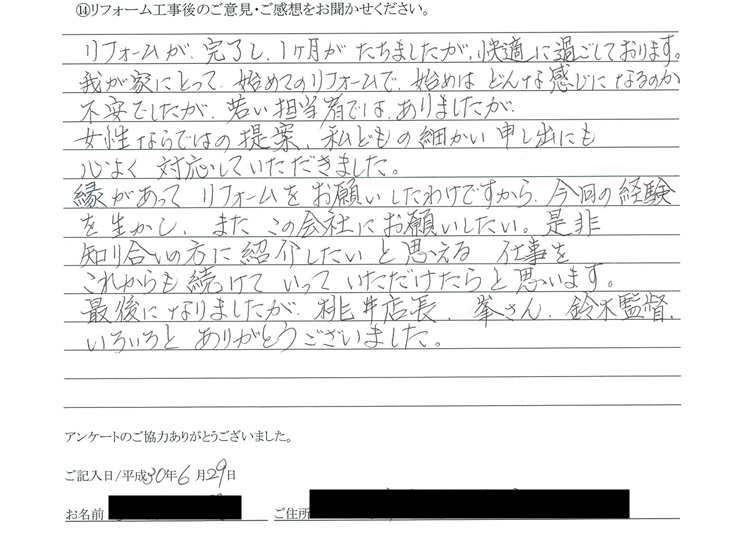 ⑭リフォーム工事後のご意見・ご感想をお聞かせください。
リフォームが、完了し、1ヶ月が たちましたが、快適に過ごしております。
我が家にとって、始めてのリフォームで、始めは どんな感じになるのか
不安でしたが、若い担当者では、ありましたが、
女性ならではの提案、私どもの細かい申し出にも
心よく 対応していただきました。
縁があって リフォームを お願いしたわけですから、今回の経験
を生かし、また この会社にお願いしたい。是非
知り合いの方に紹介したいと思える 仕事を
これからも続けて いって いただけたらと思います。
最後になりましたが、桃井店長、峯さん、鈴木監督、
いろいろと ありがとうございました。
アンケートのご協力ありがとうございました。
ご記入日/平成30年6月29日
お名前 ご住所